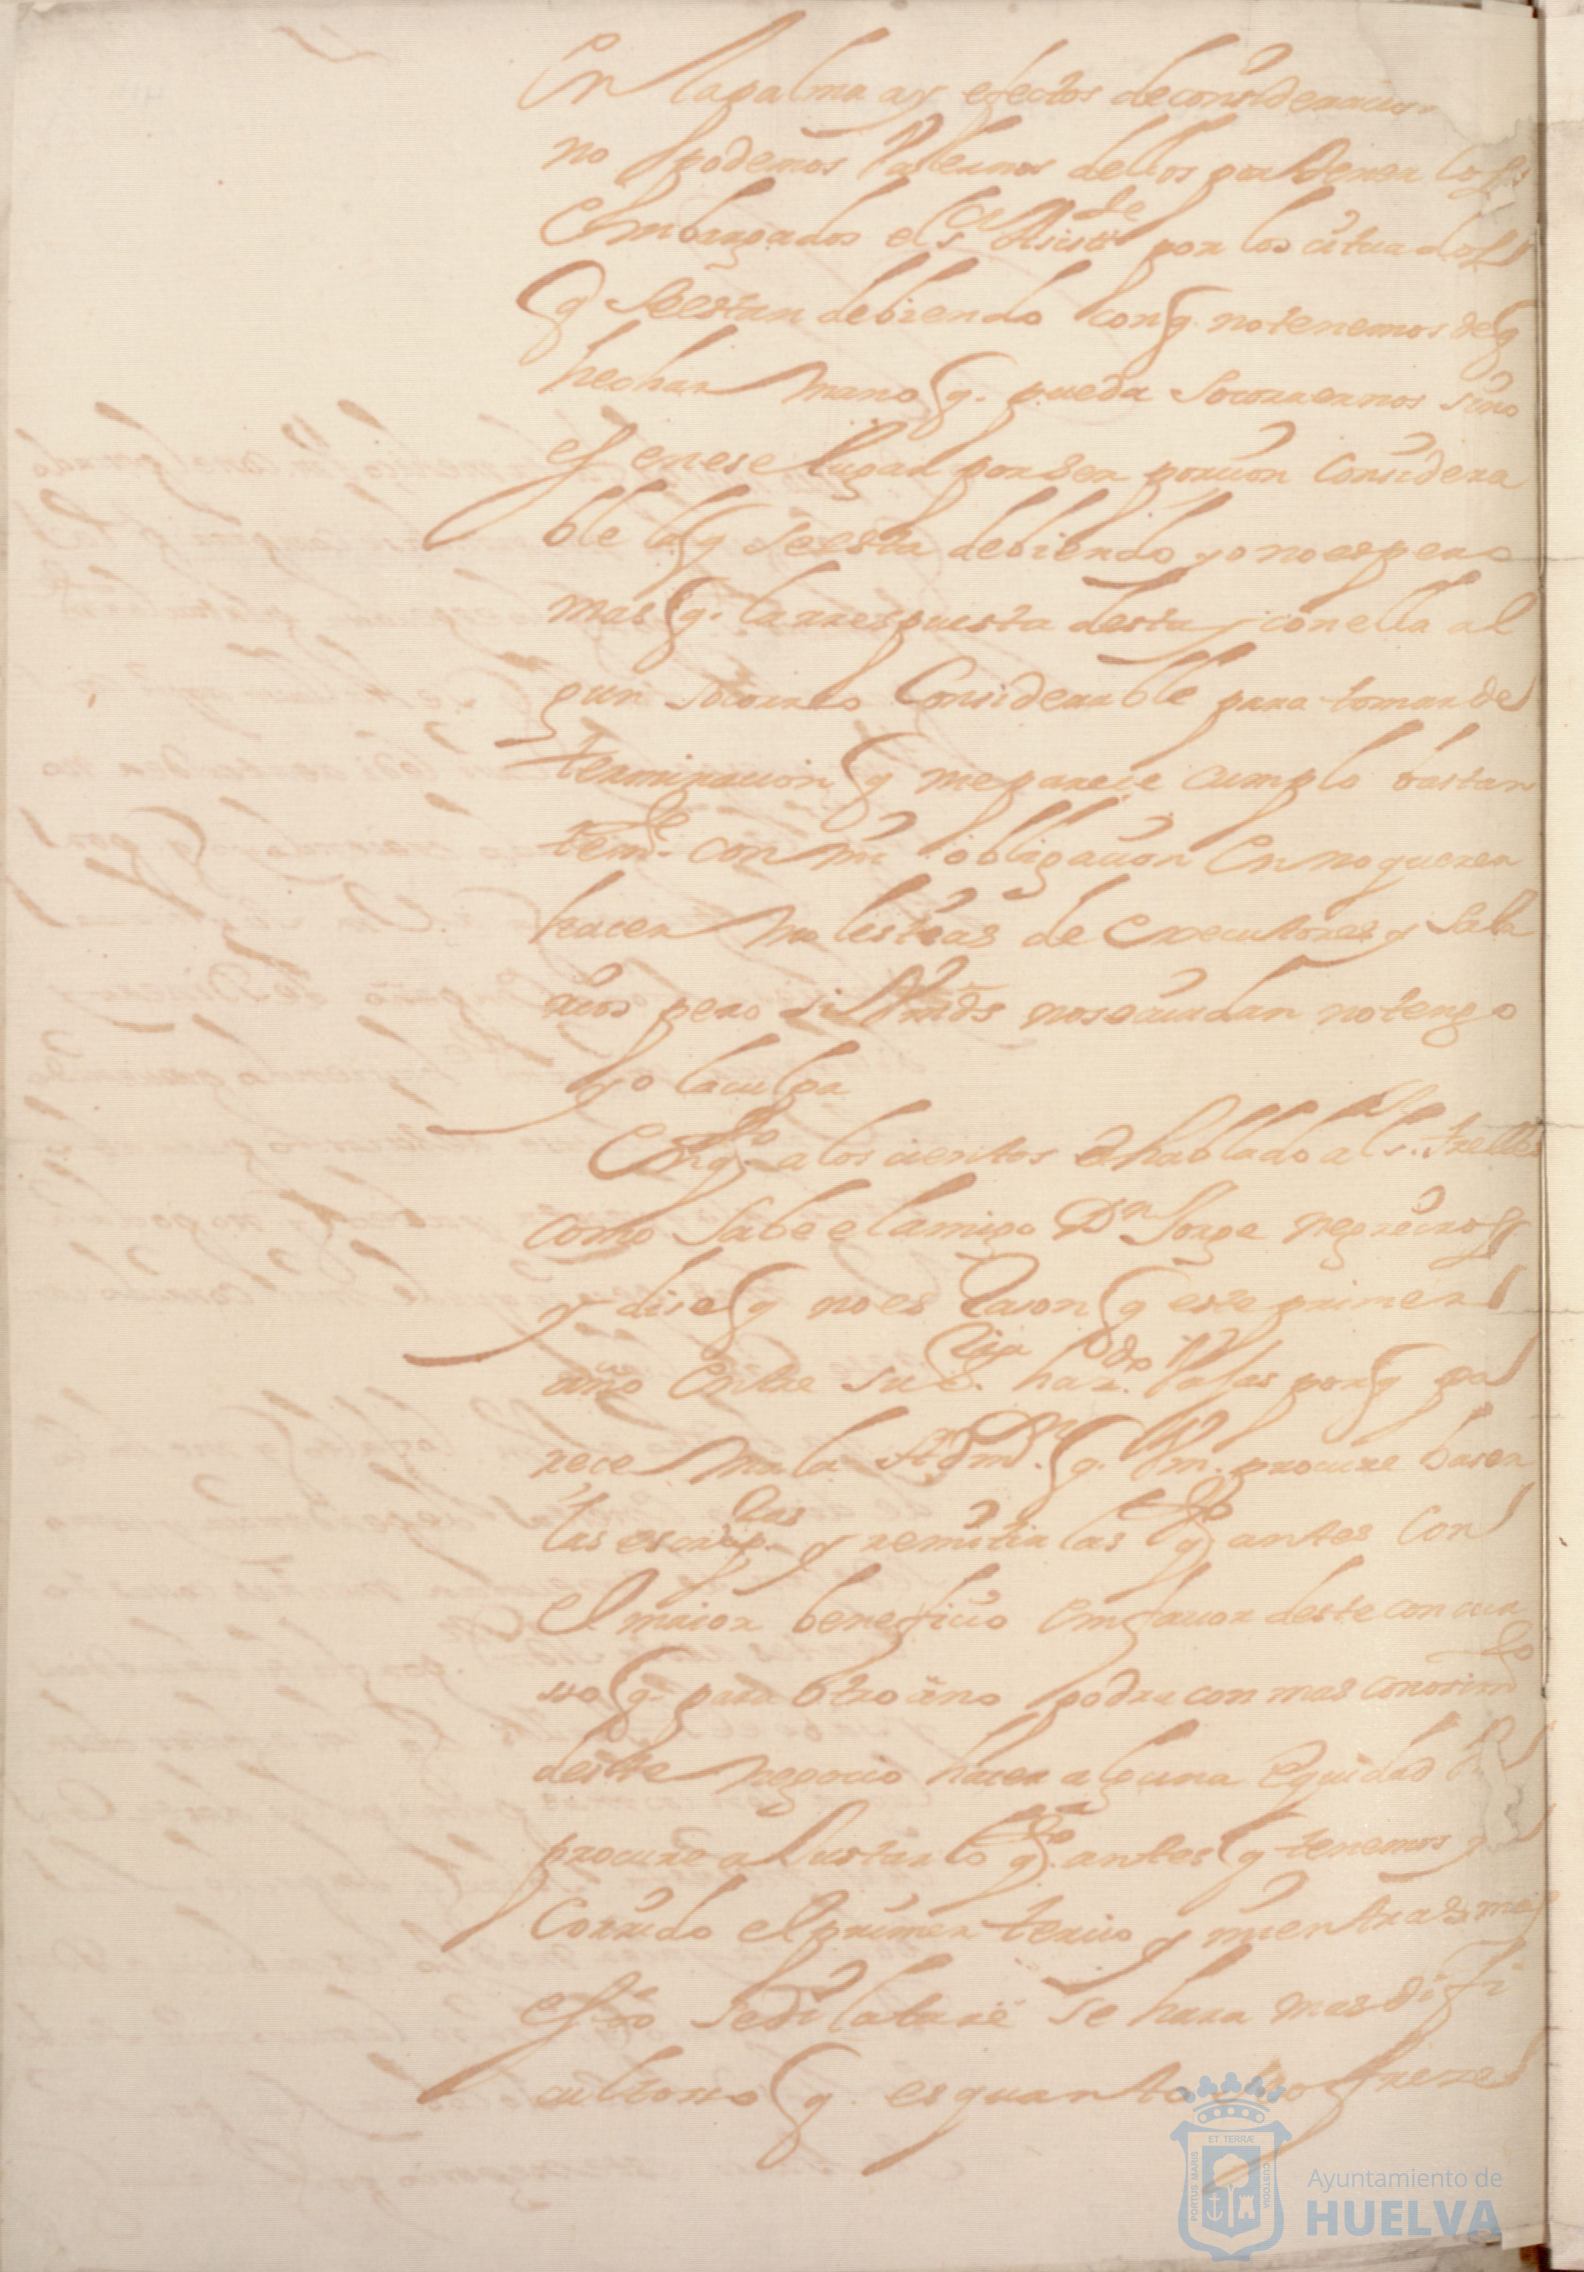 En la palma ay efectos de consideracion
no podemos Valernos dellos por tener los
Embargados el s.or Asist.te por los cituados
q se estan debiendo con q. no tenemos de q
hechar mano q. pueda socorrernos sino
es en ese lugar por ser porcion considera
ble la q se esta debiendo yo no espero
mas q. la rrespuesta desta y con ella al
gun socorro Considerable para tomar de
terminacion q me parece cumplo bastan
tem.te con mi obligacion En no querer
hacer molestias de executores y sala
rios pero si Vmds no se aiudan no tengo
yo la culpa
En q.to a los cientos e hablado al s.or trelles
como sabe el amigo D.n Jorge negreiros
y dise q no es Rason q este primer
año Entre su S.ria haz.do Vajas por q pa
rece mala Adm.on q. Vm. procure hasen
las escrip.ras y remitirlas q.to antes Con
el maior beneficio Em fauor deste concur
so q. para otro año podra con mas conosim.to
deste negocio hacer alguna Equidad
procure aJustarlo q.to antes q tenemos
Corrido el primer tercio y mientras mas
esto se dilatare se hara mas difi
cultoso q. es quanto se ofreze
Ayuntamiento de
HUELVA
PORTUS MARIS
ET TERRÆ
CUSTODIA